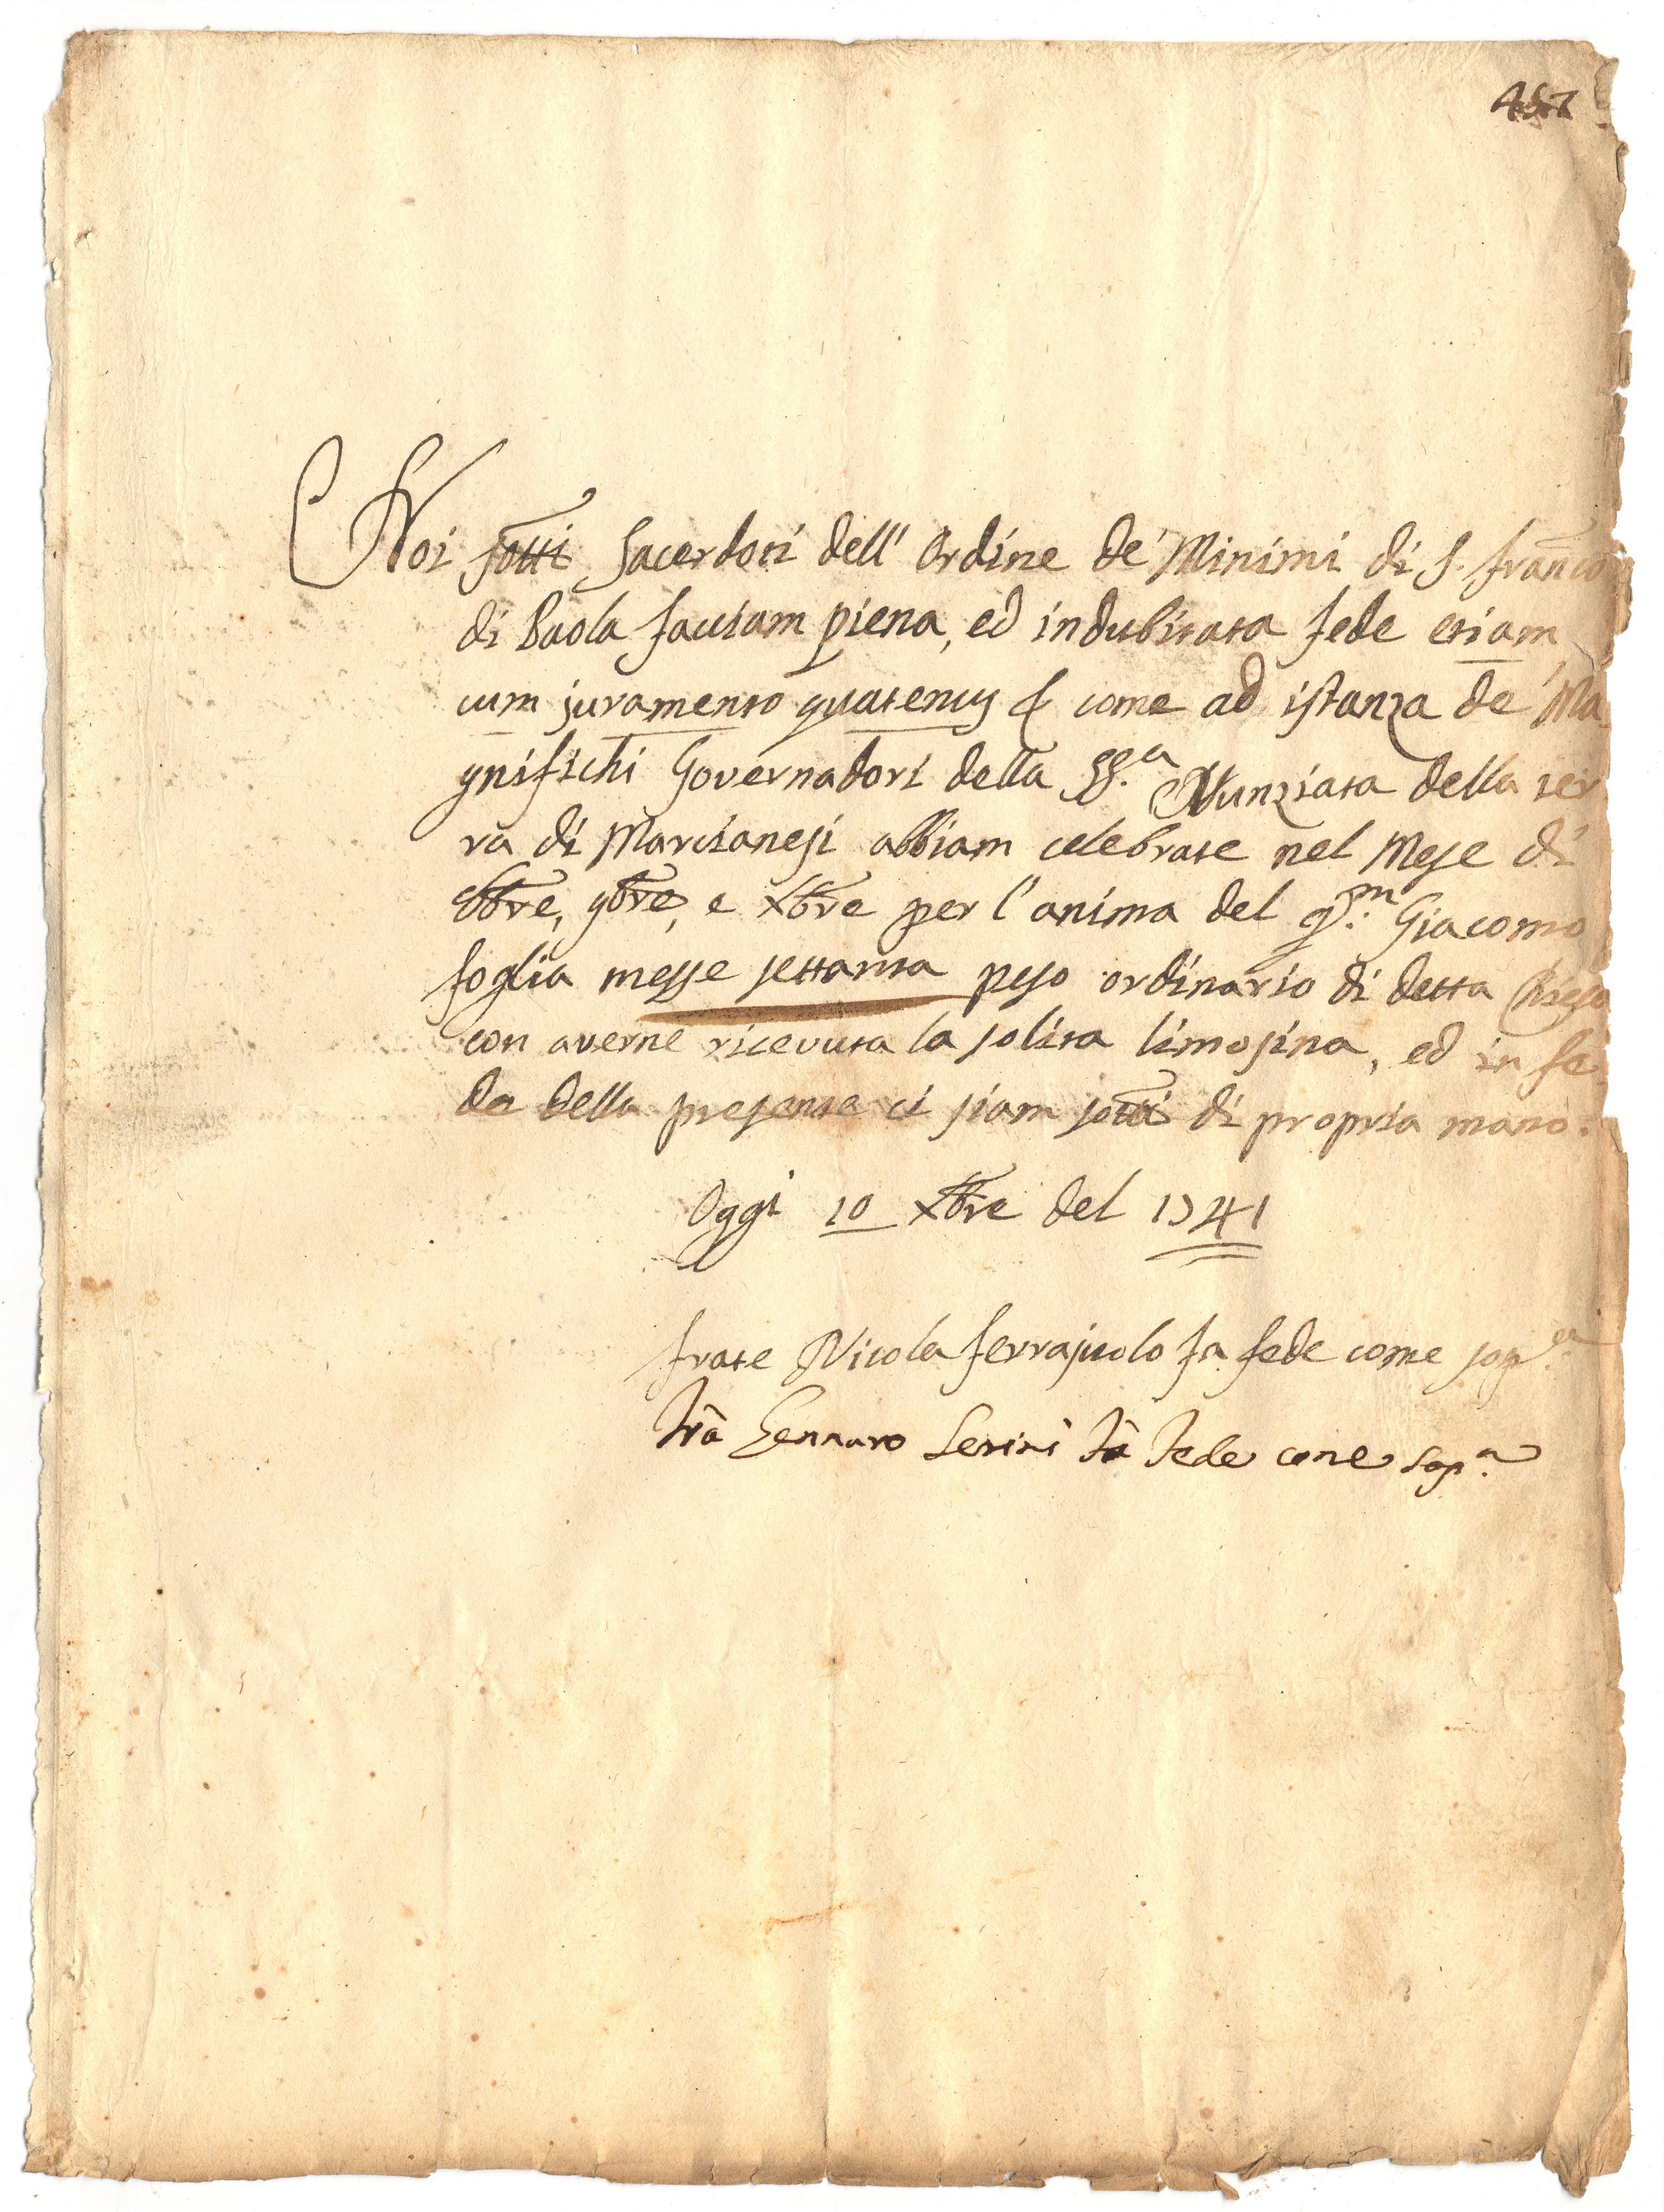 457
Noi sotti Sacerdoti dell' Ordine de' Minimi di S. Franco
di Paola facciam piena, ed indubitata fede etiam
cum juramento quatenus &c come ad istanza de' Ma
gnifichi Governadori della SS.a Nunziata della ter
ra di Marcianesi abbiam celebrate nel Mese di
8bre, 9bre, e Xbre per l'anima del q.m Giacomo
foglia messe settanta peso ordinario di detta Chiesa
con averne ricevuta la solita limosina, ed in fe
de della presente ci siam sotti di propria mano.
Oggi 10 Xbre del 1741
frate Nicola ferrajuolo fa fede come sop.a
frà Gennaro fà fede come sop.a